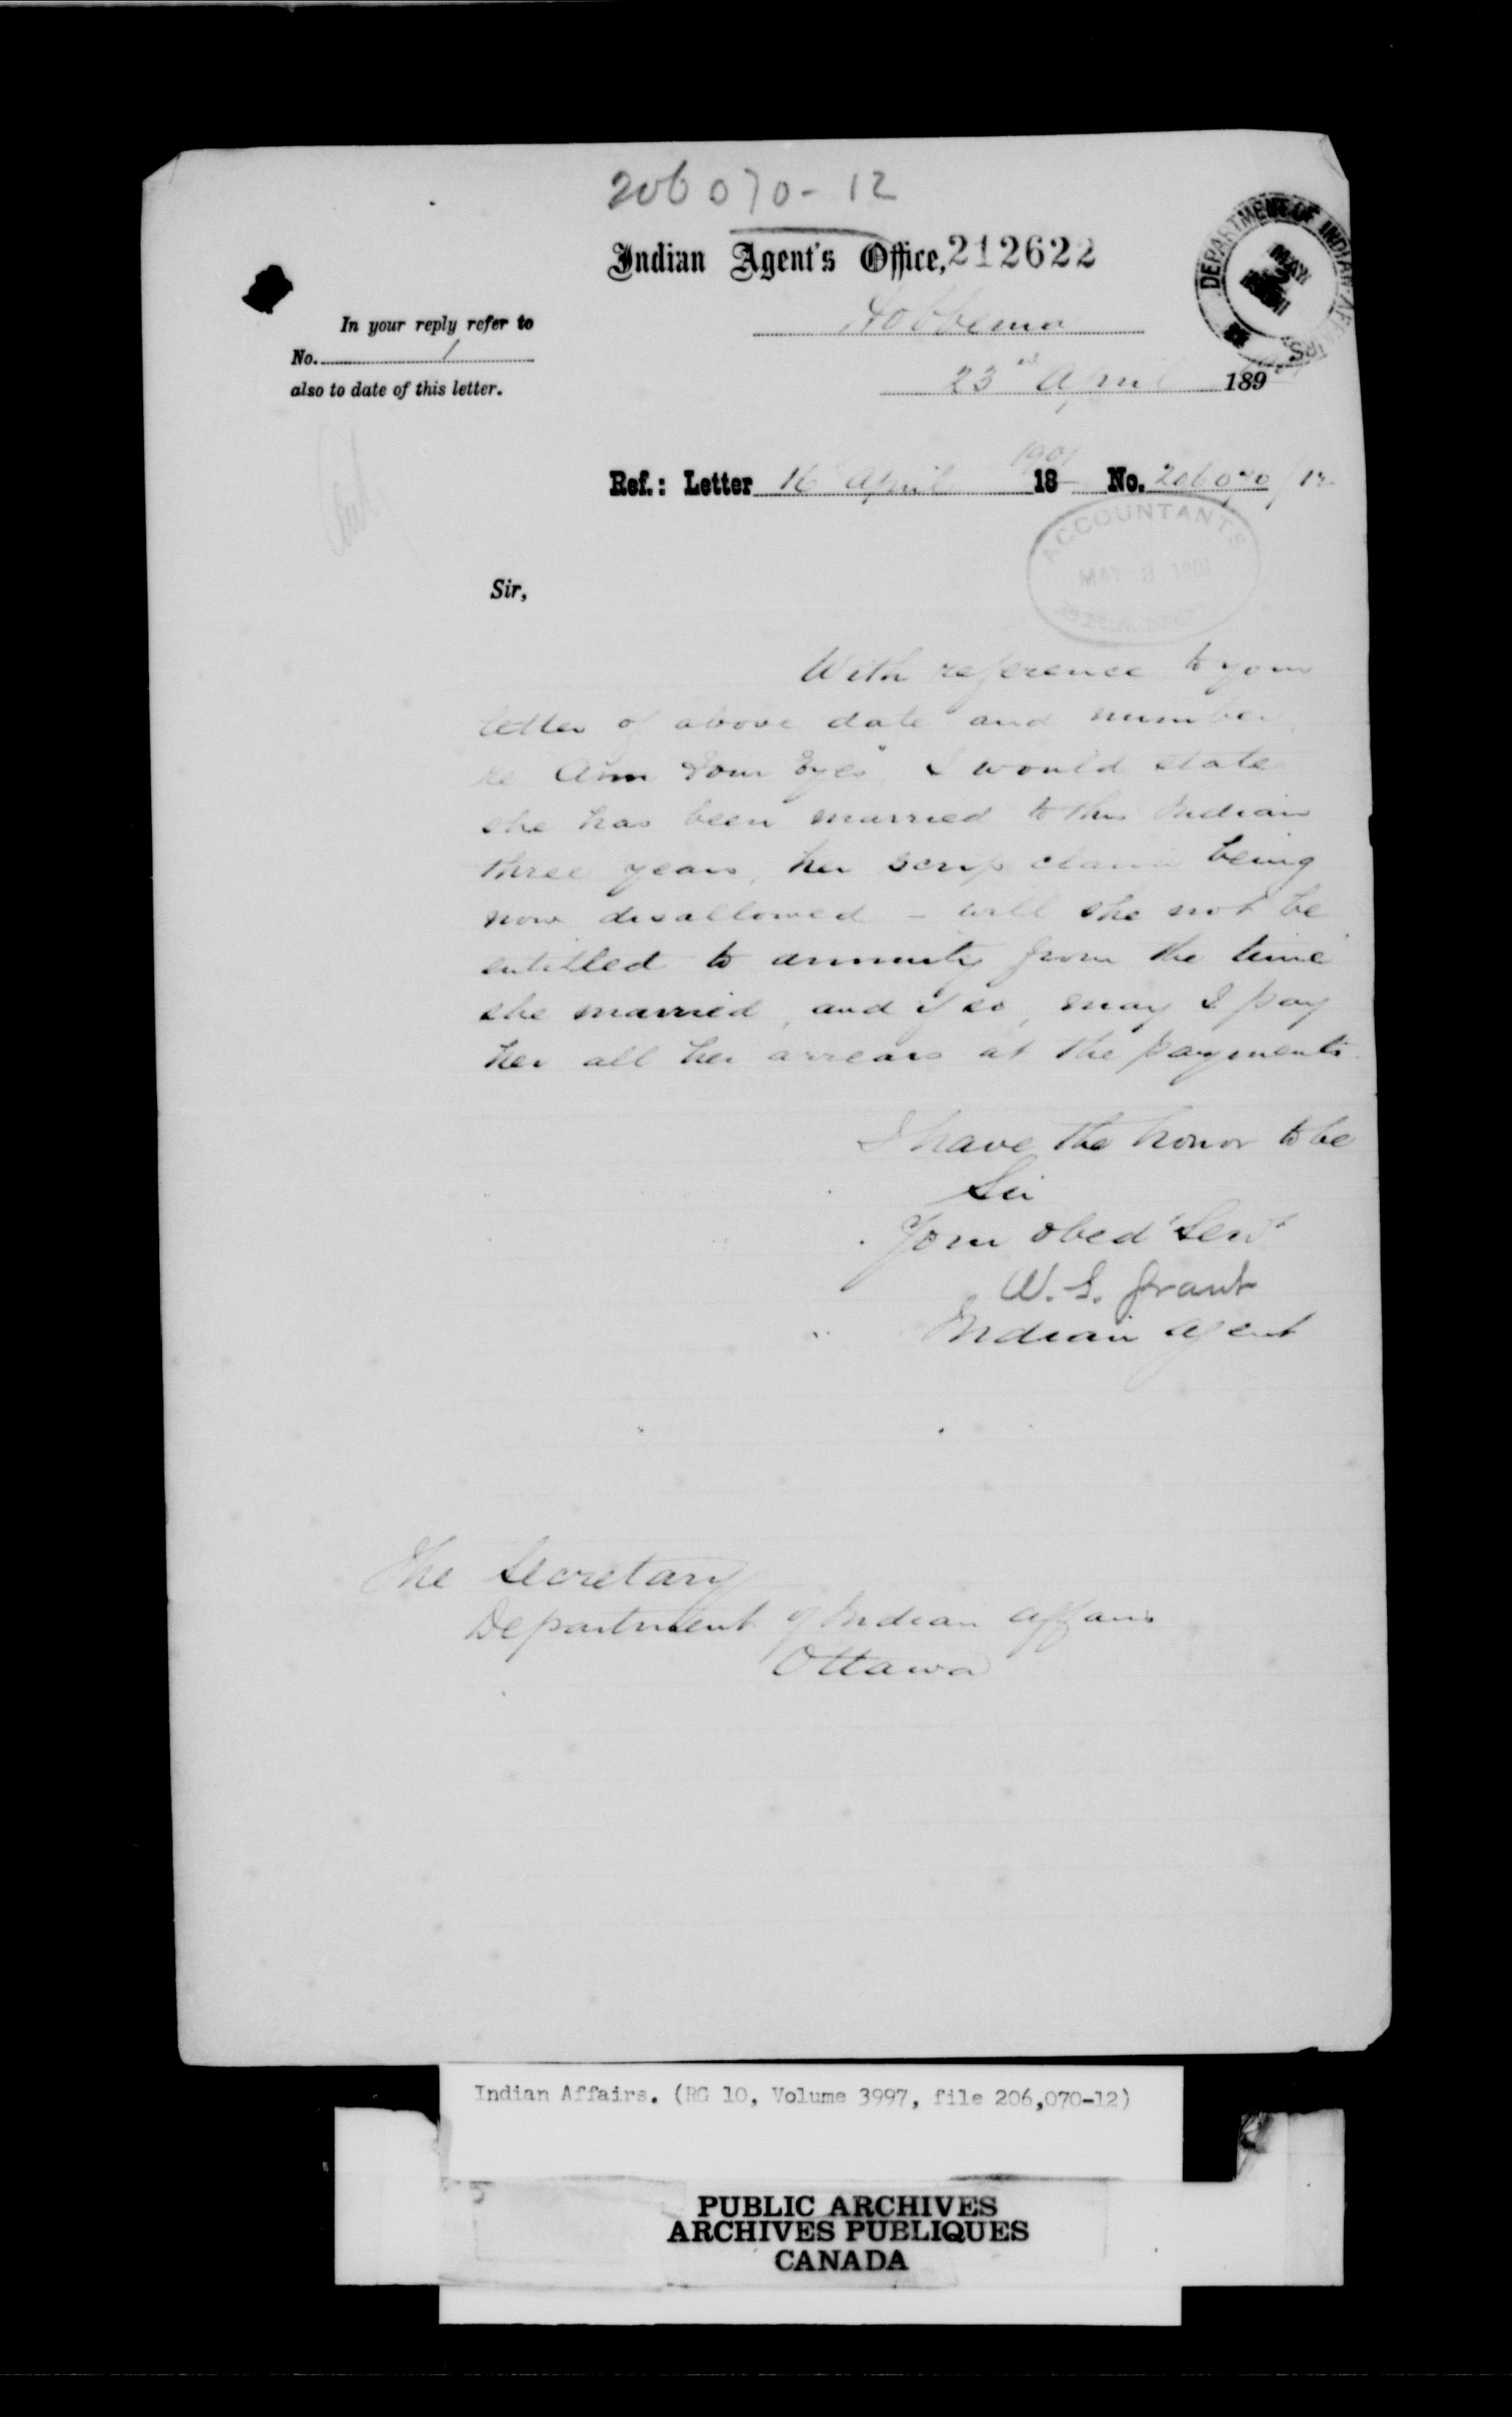 206070-12
Indian Agent's Office, 212622
DEPARTMENT OF INDIAN AFFAIRS
MAY
Hobbema
In your reply refer to
No. 1
also to date of this letter.
23rd April 189
1901
Ref.: Letter 16 April 18 No. 206070/12
ACCOUNTANTS
MAY 3 1901
Sir,
With reference to your
letter of above date and number
re "Ann Four Eyes" I would state
she has been married to this Indian
three years, her scrip claim being
now disallowed - will she not be
entitled to annuity from the time
she married, and if so, may I pay
her all her arrears at the payments.
I have the honor to be
Sir
Your obed Servt
W. S. Grant
Indian Agent
The Secretary
Department of Indian Affairs
Ottawa
Indian Affairs. (RG 10, Volume 3997, file 206,070-12)
PUBLIC ARCHIVES
ARCHIVES PUBLIQUES
CANADA